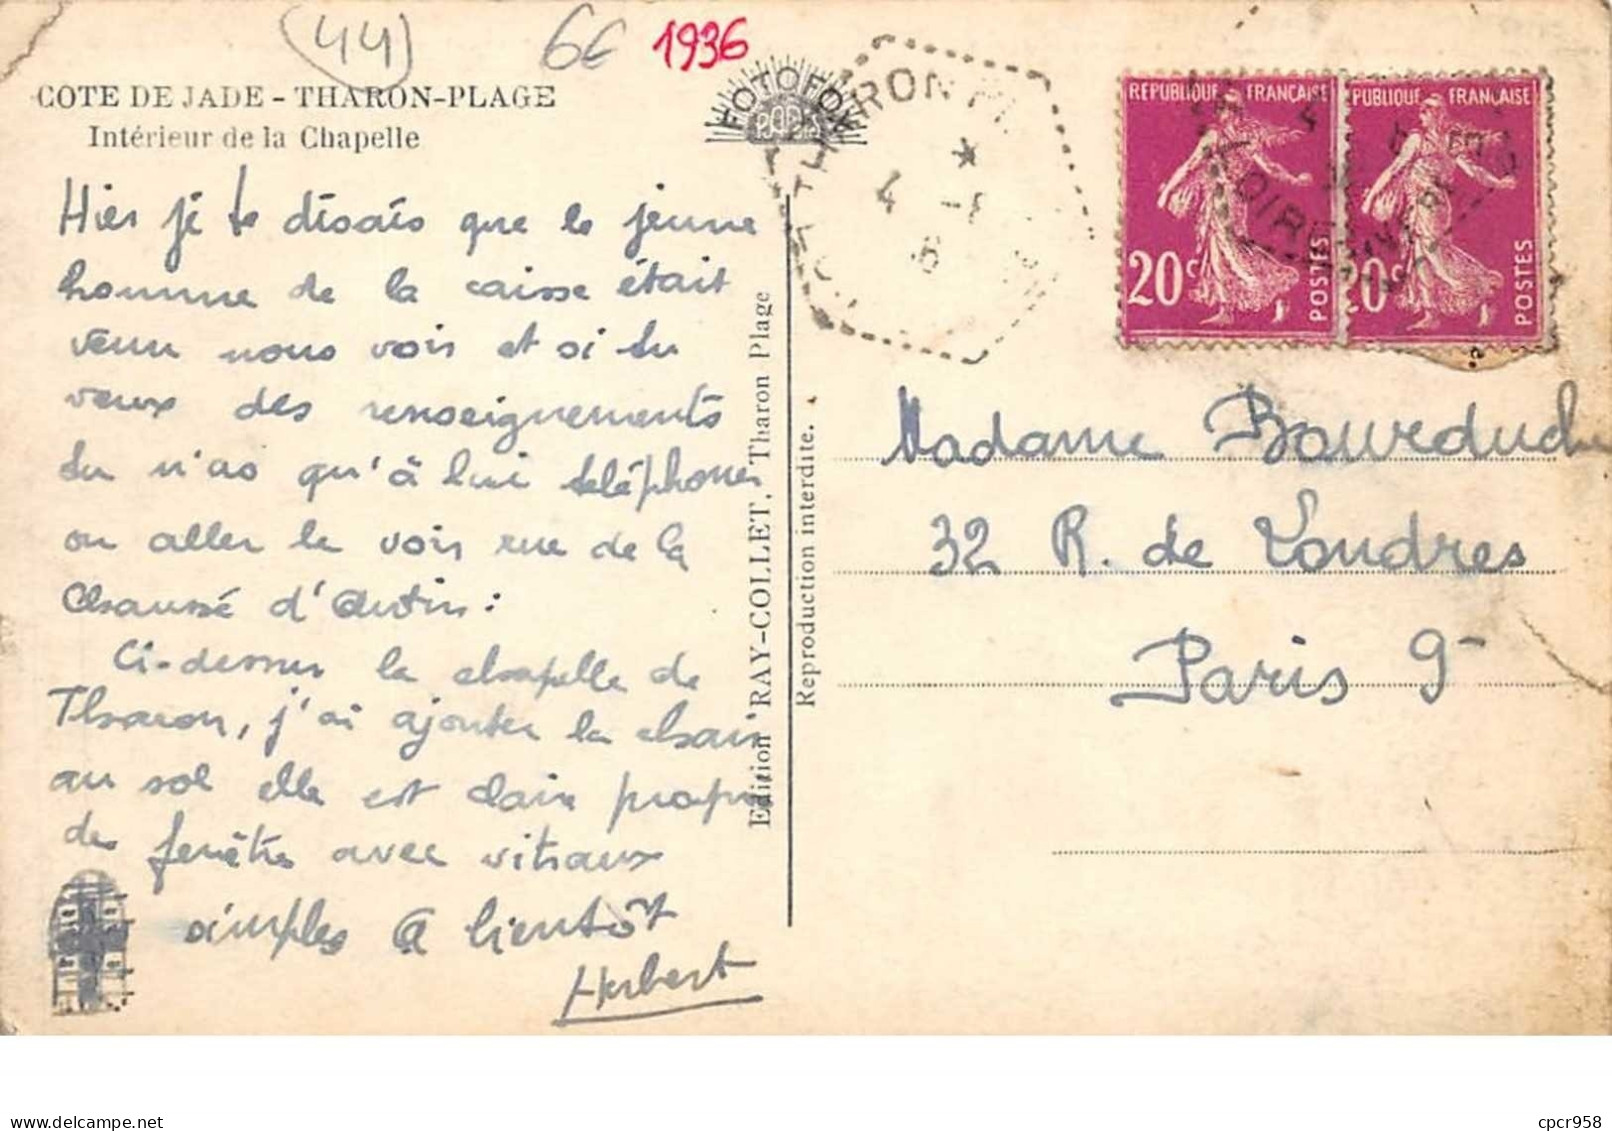 (44)
6€
1936
COTE DE JADE - THARON-PLAGE
Intérieur de la Chapelle
FOTOFOX
PARIS
Hier je te disais que le jeune
homme de la caisse était
venu nous voir et si tu
veux des renseignements
tu n'as qu'à lui téléphoner
ou aller le voir rue de la
Chaussé d'Antin:
Ci-dessus la chapelle de
Tharon, j'ai ajouter la chair
au sol elle est clair propre
des fenêtres avec vitraux
simples à bientôt
Herbert
Edition RAY-COLLET, Tharon Plage
Reproduction interdite.
4
REPUBLIQUE FRANÇAISE
20c
POSTES
PUBLIQUE FRANÇAISE
20c
POSTES
LOIRE
Madame
32 R. de Londres
Paris 9
cpcr958